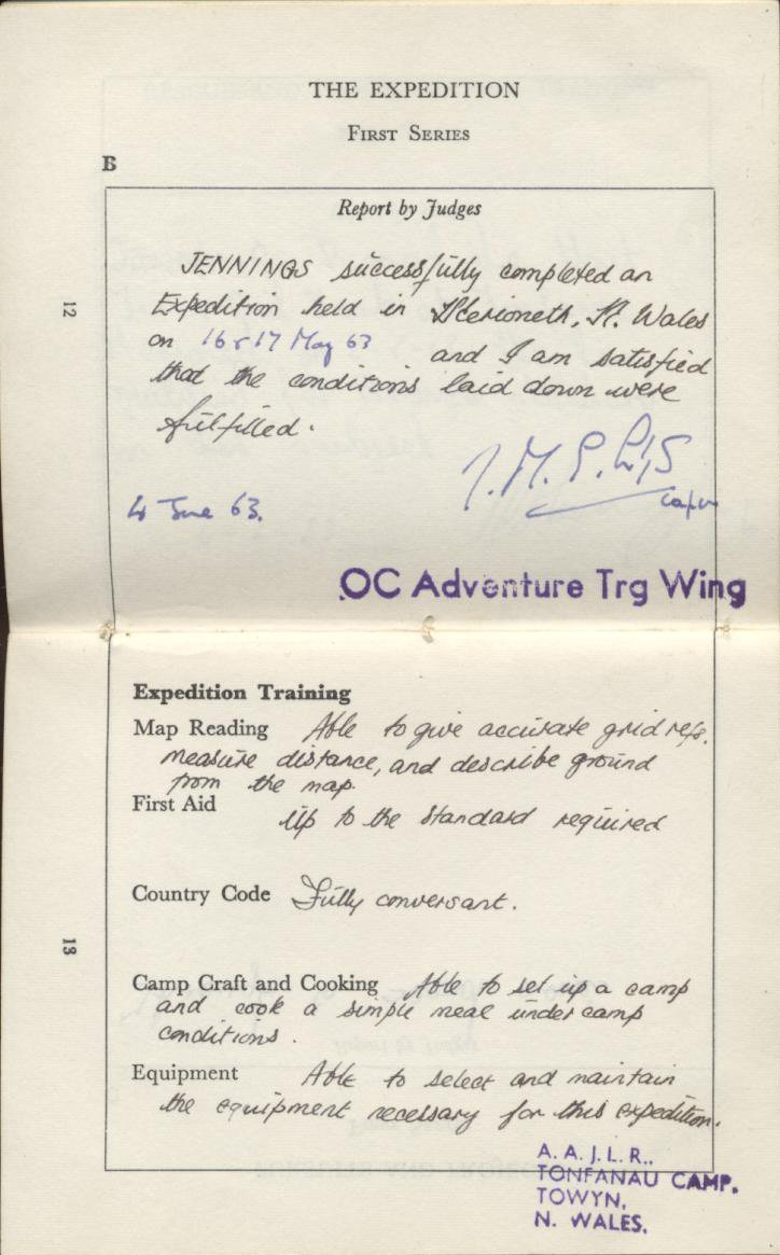 THE EXPEDITION
FIRST SERIES
B
Report by Judges
JENNINGS successfully completed an
Expedition held in Merioneth, N. Wales
on 16 & 17 May 63 and I am satisfied
that the conditions laid down were
fulfilled.
4 June 63.
Capt
OC Adventure Trg Wing
12
Expedition Training
Map Reading Able to give accurate grid refs.
measure distance, and describe ground
from the map.
First Aid
Up to the standard required
Country Code Fully conversant.
13
Camp Craft and Cooking Able to set up a camp
and cook a simple meal under camp
conditions.
Equipment Able to select and maintain
the equipment necessary for this expedition.
A. A. J. L. R..
TONFANAU CAMP.
TOWYN,
N. WALES.